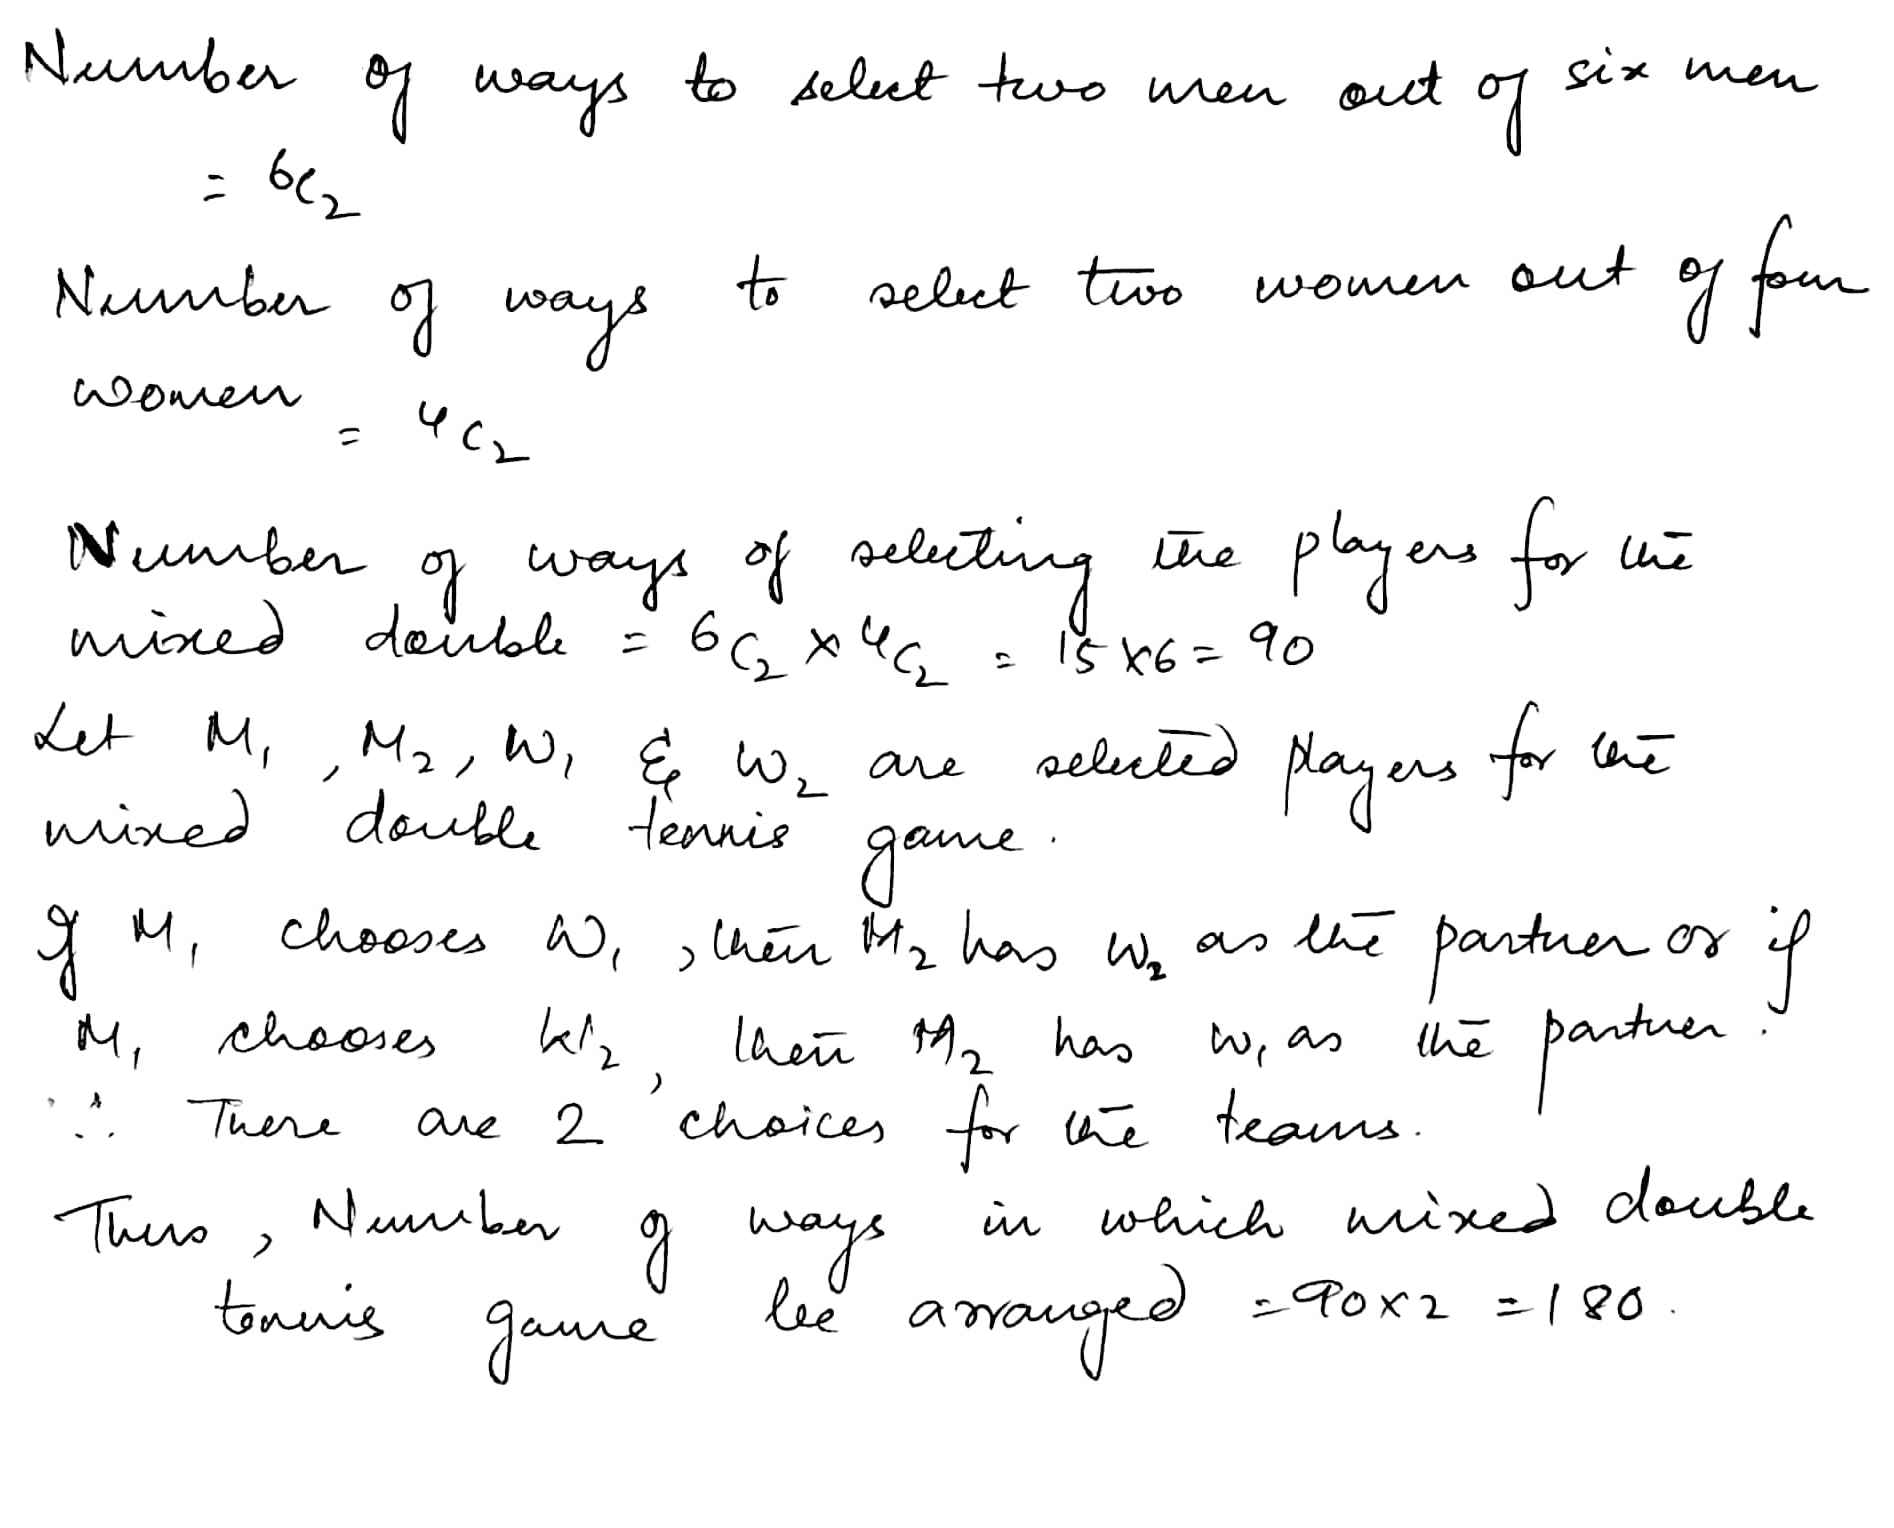 Number of ways to select two men out of six men
= 6C2
Number of ways to select two women out of four
women = 4C2
Number of ways of selecting the players for the
mixed double = 6C2 × 4C2 = 15×6 = 90
Let M1, M2, W1 & W2 are selected players for the
mixed double tennis game.
If M1 chooses W1, then M2 has W2 as the partner or if
M1 chooses W2, then M2 has W1 as the partner.
∴ There are 2 choices for the teams.
Thus, Number of ways in which mixed double
tennis game be arranged = 90×2 = 180.